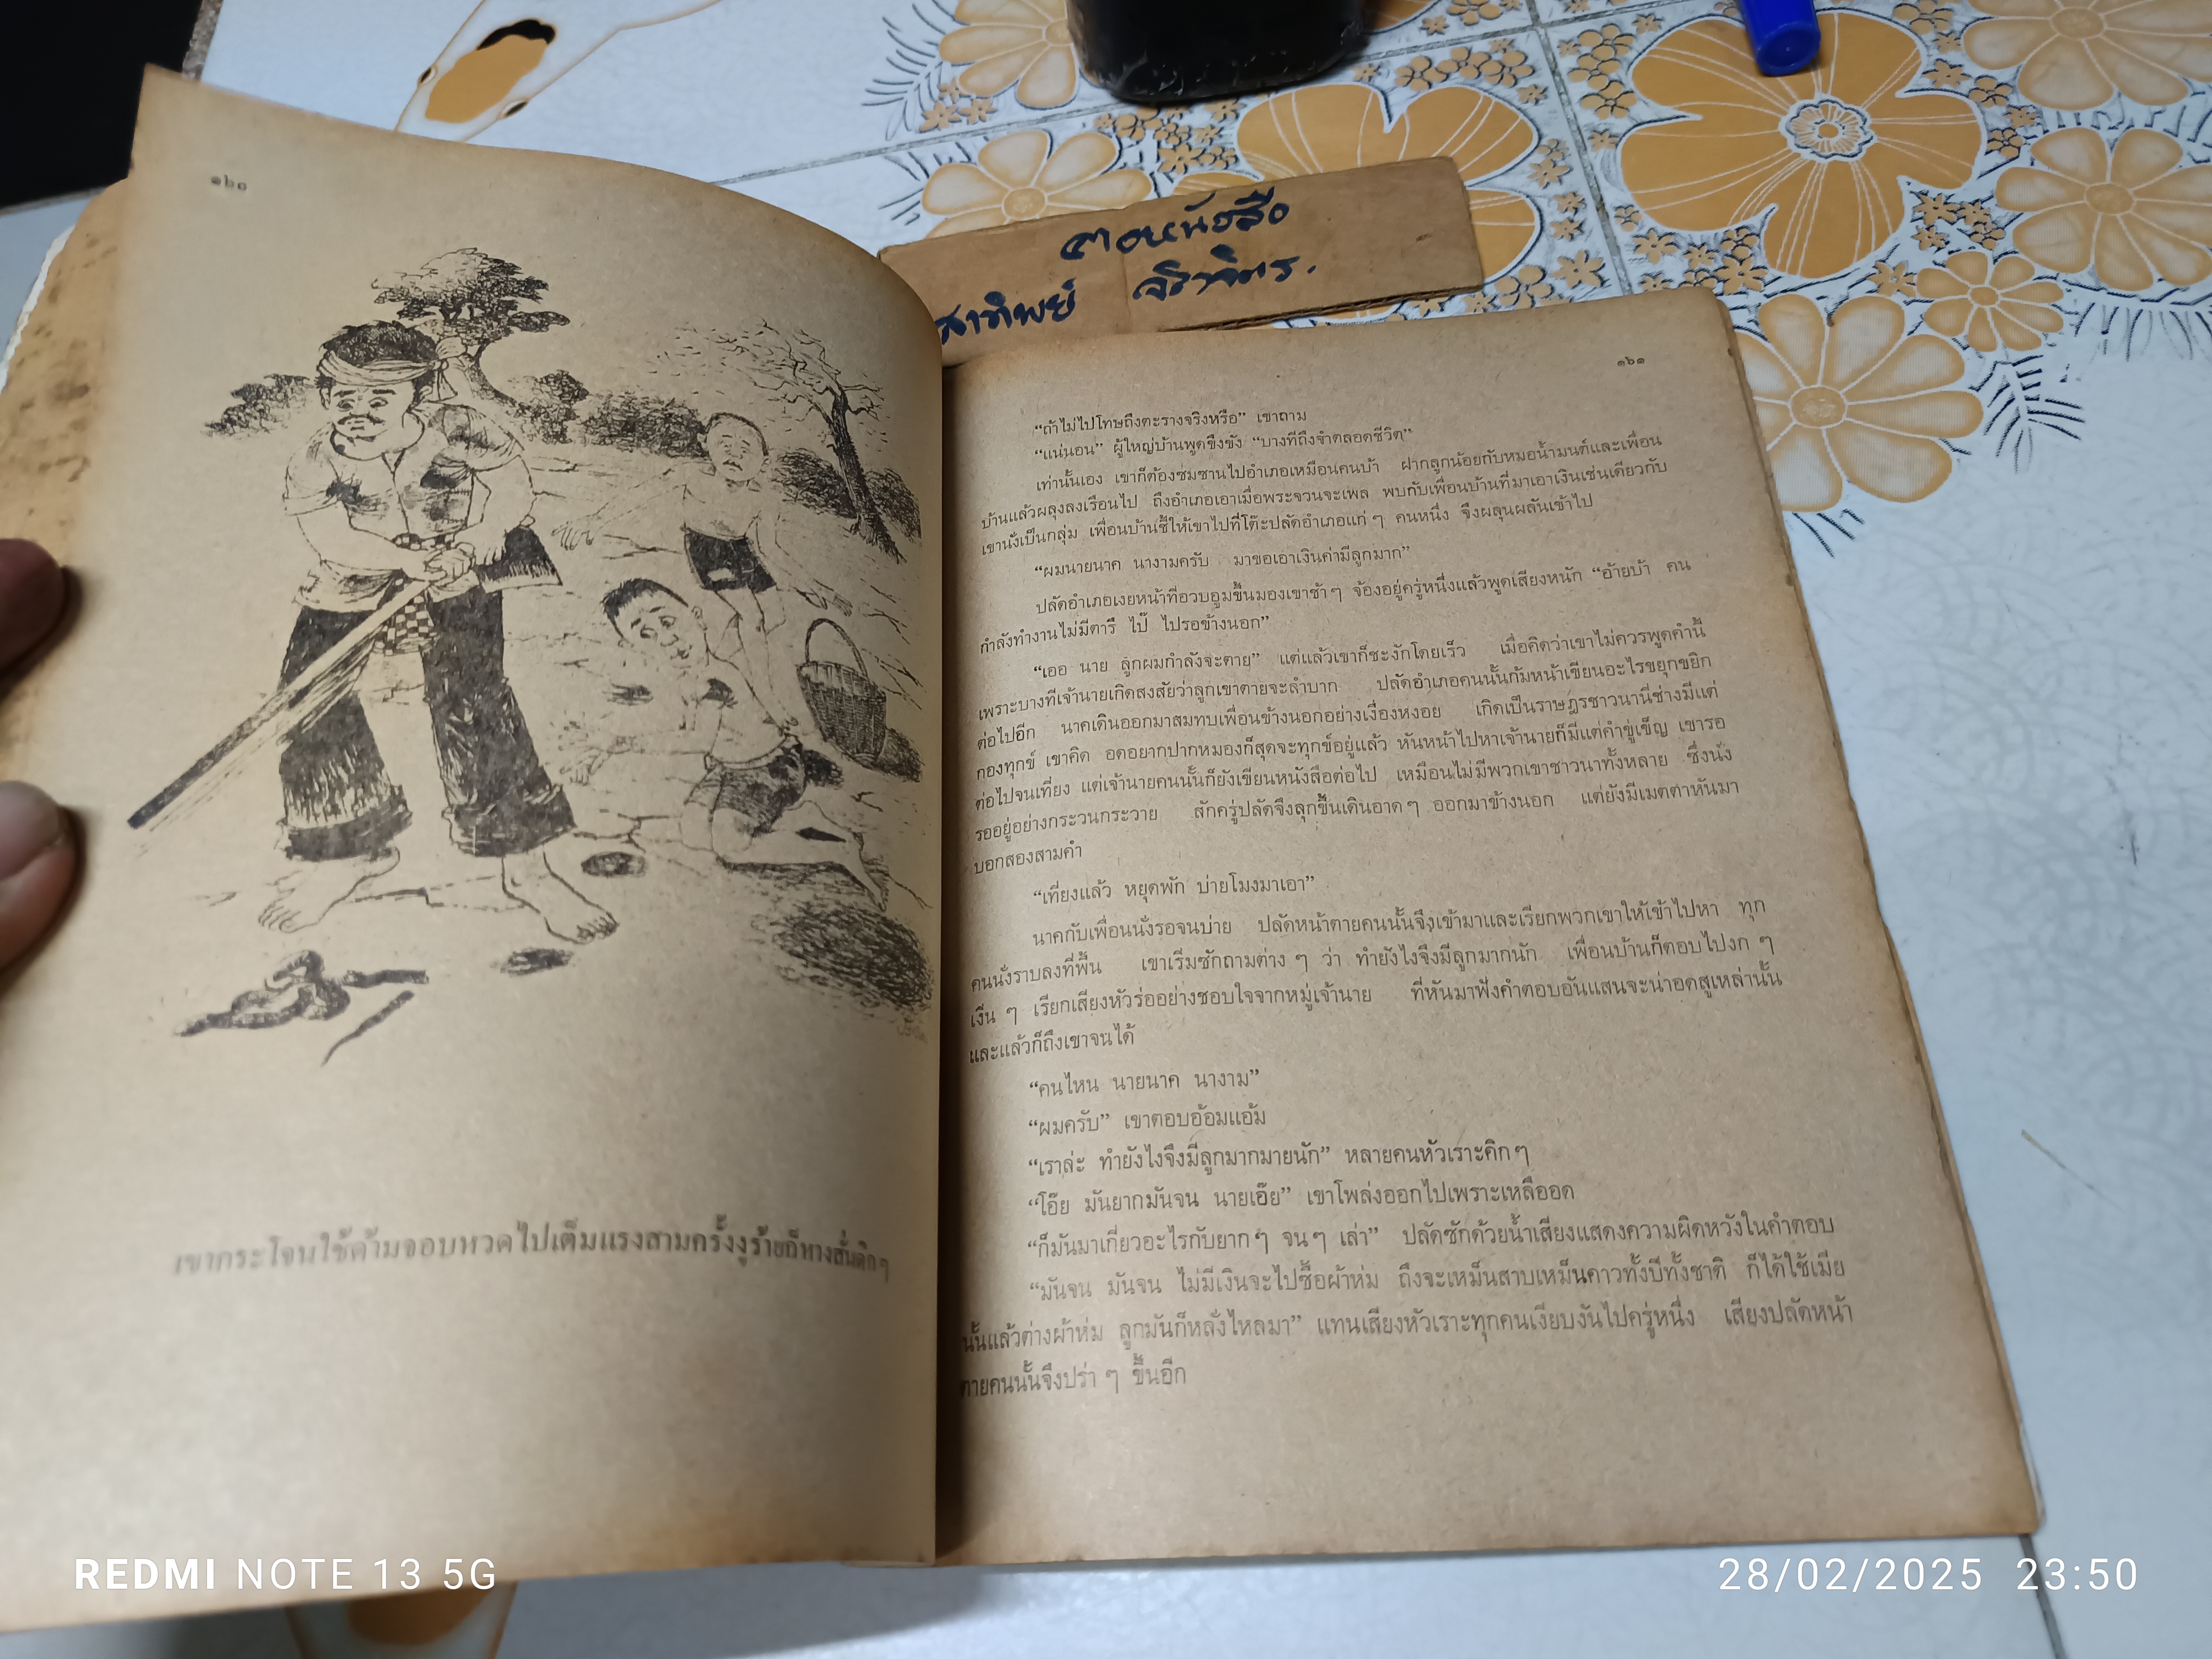 ๑๖๐
เขากระโจนใช้ด้ามจอบหวดไปเต็มแรงสามครั้งงูร้ายก็หางสั่นดิกๆ
ขอหนังสือ
สาทิพย์
๑๖๑
“ถ้าไม่ไปโทษถึงตะรางจริงหรือ” เขาถาม
“แน่นอน” ผู้ใหญ่บ้านพูดขึงขัง “บางทีถึงจำตลอดชีวิต”
เท่านั้นเอง เขาก็ต้องซมซานไปอำเภอเหมือนคนบ้า ฝากลูกน้อยกับหมอน้ำมนต์และเพื่อน
บ้านแล้วผลุงลงเรือนไป ถึงอำเภอเอาเมื่อพระจวนจะเพล พบกับเพื่อนบ้านที่มาเอาเงินเช่นเดียวกับ
เขานั่งเป็นกลุ่ม เพื่อนบ้านชี้ให้เขาไปที่โต๊ะปลัดอำเภอแก่ ๆ คนหนึ่ง จึงผลุนผลันเข้าไป
“ผมนายนาค นางามครับ มาขอเอาเงินค่ามีลูกมาก”
ปลัดอำเภอเงยหน้าที่อวบอูมขึ้นมองเขาช้า ๆ จ้องอยู่ครู่หนึ่งแล้วพูดเสียงหนัก “อ้ายบ้า คน
กำลังทำงานไม่มีตารึ ไป๊ ไปรอข้างนอก”
“เออ นาย ลูกผมกำลังจะตาย” แต่แล้วเขาก็ชะงักโดยเร็ว เมื่อคิดว่าเขาไม่ควรพูดคำนี้
เพราะบางทีเจ้านายเกิดสงสัยว่าลูกเขาตายจะลำบาก ปลัดอำเภอคนนั้นก้มหน้าเขียนอะไรขยุกขยิก
ต่อไปอีก นาคเดินออกมาสมทบเพื่อนข้างนอกอย่างเงื่องหงอย เกิดเป็นราษฎรชาวนานี่ช่างมีแต่
กองทุกข์ เขาคิด อดอยากปากหมองก็สุดจะทุกข์อยู่แล้ว หันหน้าไปหาเจ้านายก็มีแต่คำขู่เข็ญ เขารอ
ต่อไปจนเที่ยง แต่เจ้านายคนนั้นก็ยังเขียนหนังสือต่อไป เหมือนไม่มีพวกเขาชาวนาทั้งหลาย ซึ่งนั่ง
รออยู่อย่างกระวนกระวาย สักครู่ปลัดจึงลุกขึ้นเดินอาด ๆ ออกมาข้างนอก แต่ยังมีเมตตาหันมา
บอกสองสามคำ
“เที่ยงแล้ว หยุดพัก บ่ายโมงมาเอา”
นาคกับเพื่อนนั่งรอจนบ่าย ปลัดหน้าตายคนนั้นจึงเข้ามาและเรียกพวกเขาให้เข้าไปหา ทุก
คนนั่งราบลงที่พื้น เขาเริ่มซักถามต่าง ๆ ว่า ทำยังไงจึงมีลูกมากนัก เพื่อนบ้านก็ตอบไปงก ๆ
เงิ่น ๆ เรียกเสียงหัวร่ออย่างชอบใจจากหมู่เจ้านาย ที่หันมาฟังคำตอบอันแสนจะน่าอดสูเหล่านั้น
และแล้วก็ถึงเขาจนได้
“คนไหน นายนาค นางาม”
“ผมครับ” เขาตอบอ้อมแอ้ม
“เราล่ะ ทำยังไงจึงมีลูกมากมายนัก” หลายคนหัวเราะคิก ๆ
“โอ๊ย มันยากมันจน นายเอ๊ย” เขาโพล่งออกไปเพราะเหลืออด
“ก็มันมาเกี่ยวอะไรกับยาก ๆ จน ๆ เล่า” ปลัดซักด้วยน้ำเสียงแสดงความผิดหวังในคำตอบ
“มันจน มันจน ไม่มีเงินจะไปซื้อผ้าห่ม ถึงจะเหม็นสาบเหม็นคาวทั้งปีทั้งชาติ ก็ได้ใช้เมีย
นั้นแล้วต่างผ้าห่ม ลูกมันก็หลั่งไหลมา” แทนเสียงหัวเราะทุกคนเงียบงันไปครู่หนึ่ง เสียงปลัดหน้า
ตายคนนั้นจึงปร่า ๆ ขึ้นอีก
REDMI NOTE 13 5G
28/02/2025 23:50